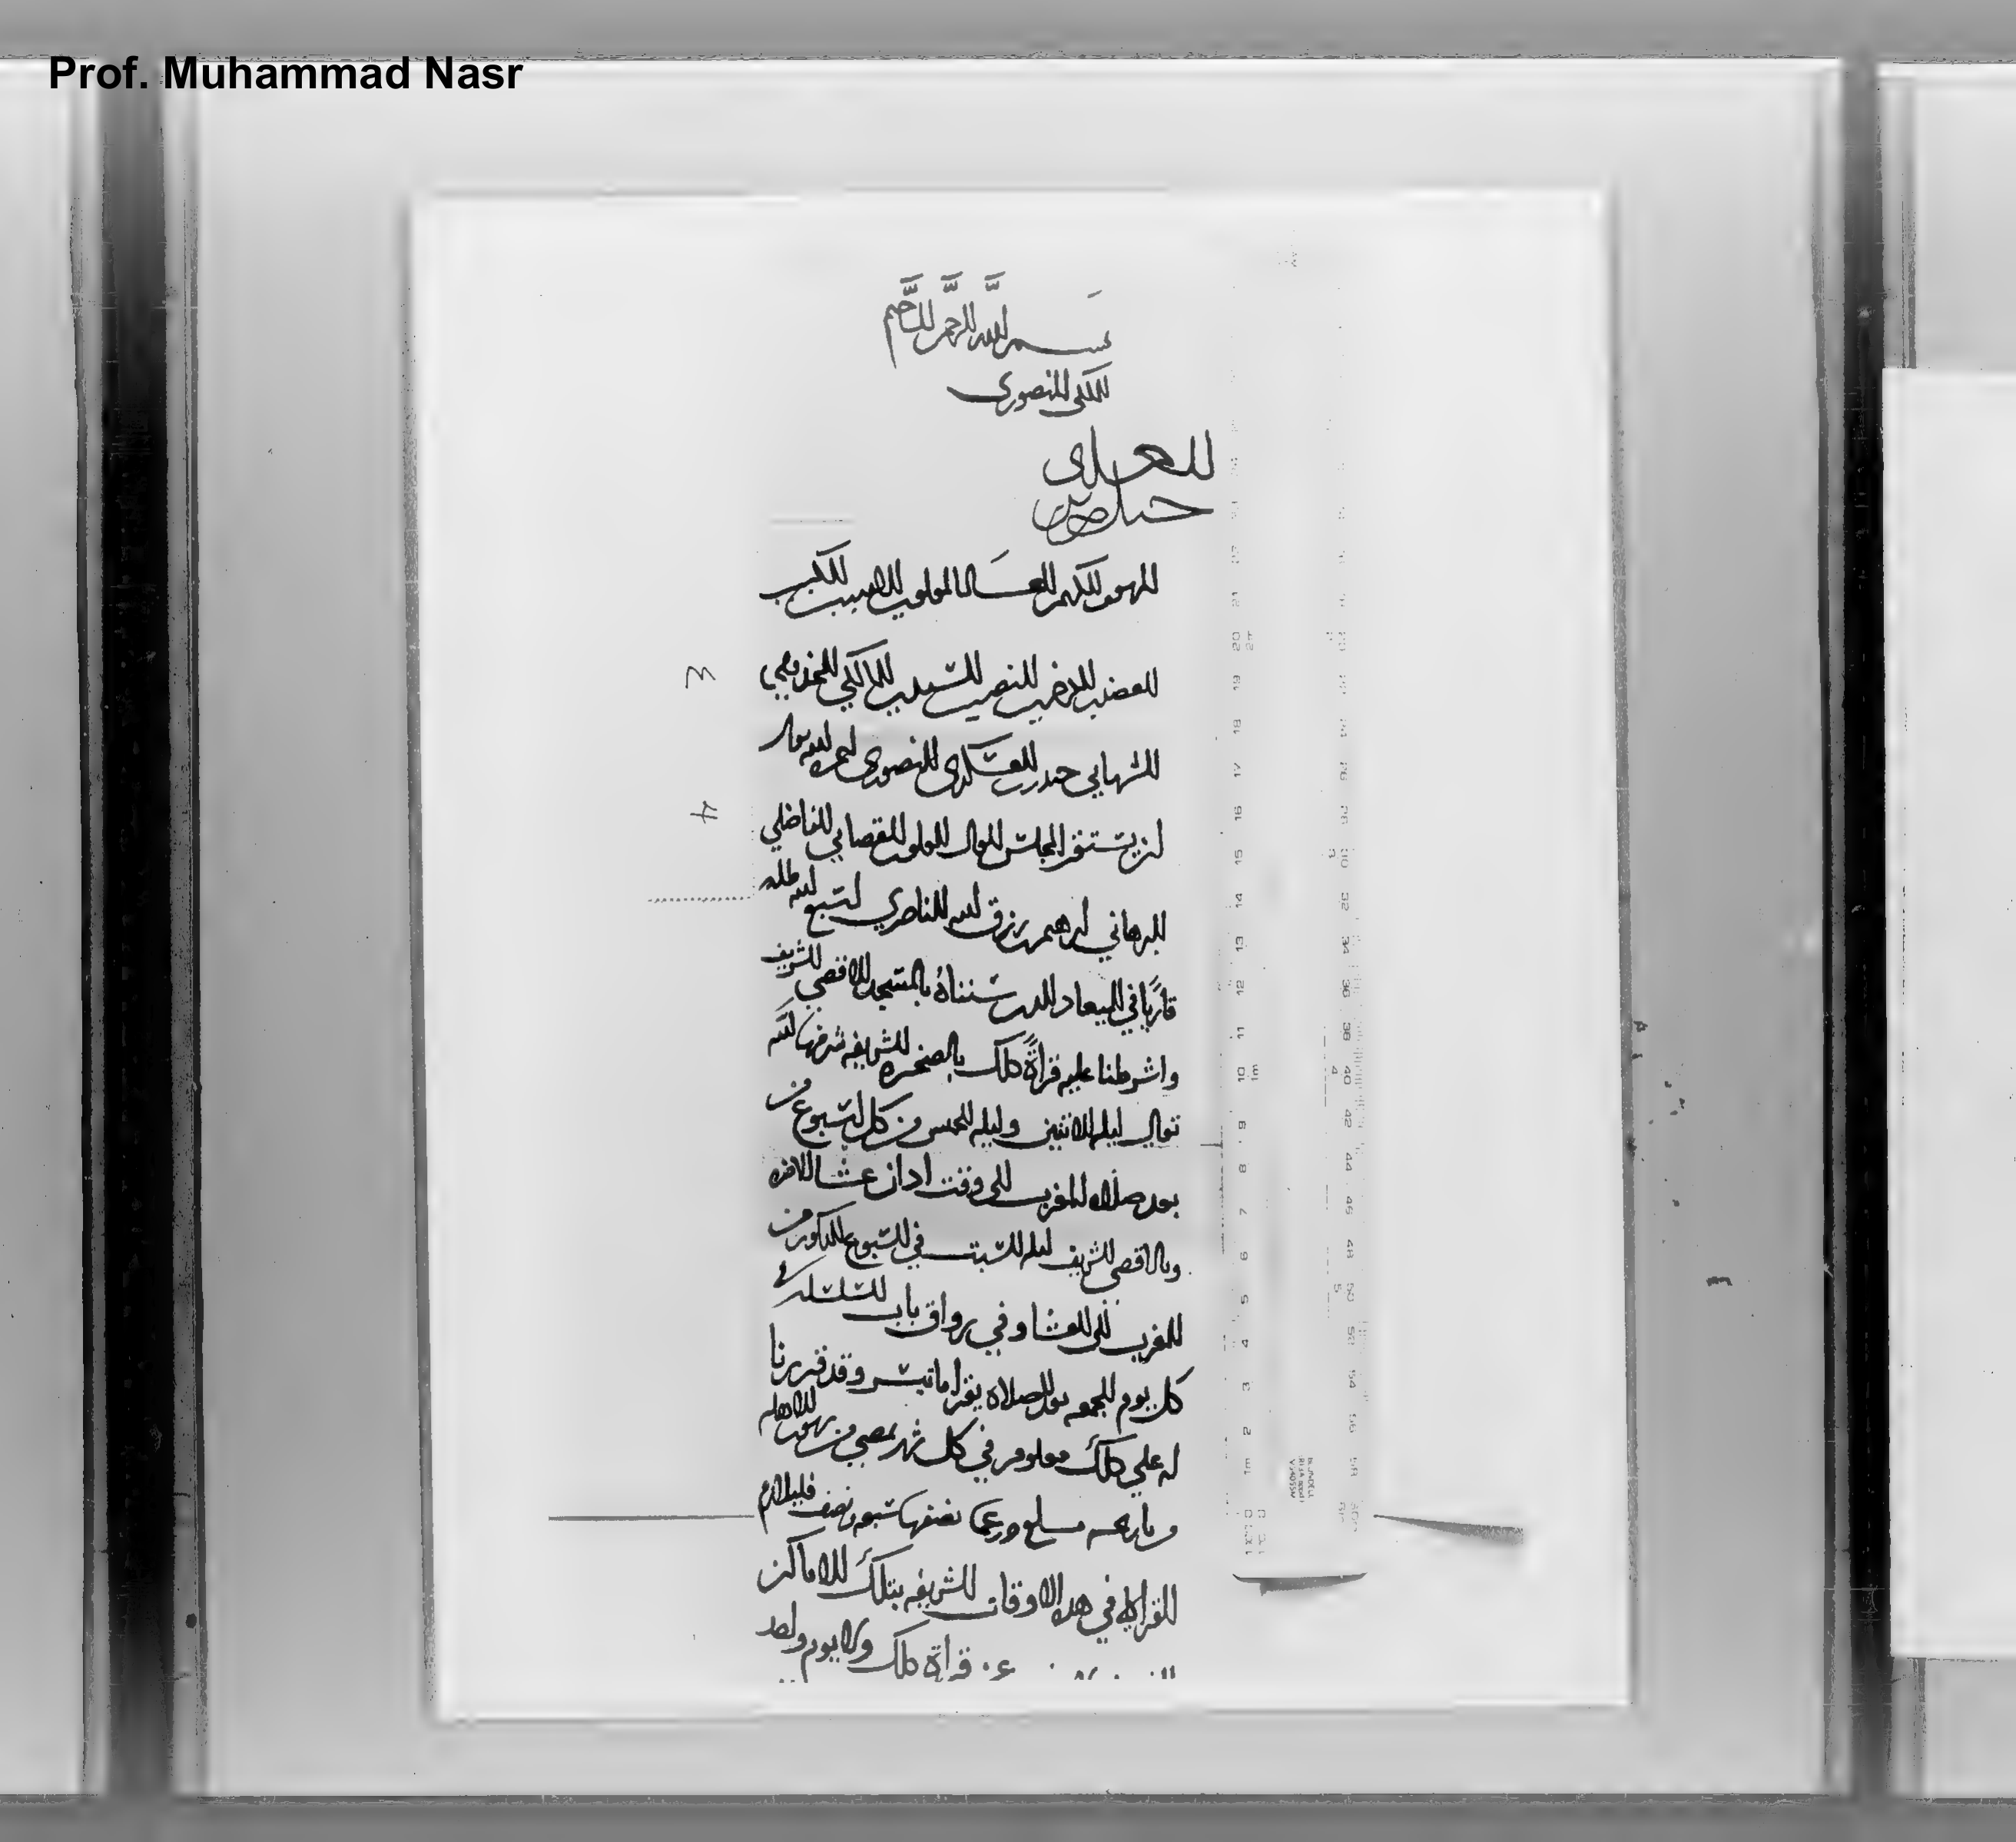 Prof. Muhammad Nasr
بسم الله الرحمن الرحيم
الملكي المنصوري
العلاى
المرسوم الكريم العالي المولوي الاميري الكبيري
العضدي النصيري السيدي المالكي المخدومي
الشهابي حيدر العسكري المنصوري اعزه الله تعالى
ان يستقر المجلس العالي المولوي القضايي الفاضلي
البرهاني ابرهيم بن رزق الله الناصري اسبغ الله ظله
قاريا في الميعاد الذي بالمسجد الاقصى الشريف
واشرطنا عليه قراة ذلك بالصخره الشريفه شرفها الله
تعالى ليله الاثنين وليله الخميس من كل اسبوع من
بعد صلاه المغرب الى وقت ادان عشا الاخره
وبالاقصى الشريف ليله السبت في السبوع المذكور من
المغرب الى العشا وفي رواق باب السلسله في
كل يوم الجمعه بعد الصلاه يقرا ما تيسر وقد قررنا
له على ذلك معلوم في كل شهر يمضي من شهور الاهله
درهما نصفها سبعه ونصف فليلازم
القراه في هده الاوقات الشريفه بتلك الاماكن
قراة ذلك ولا يوم واحد